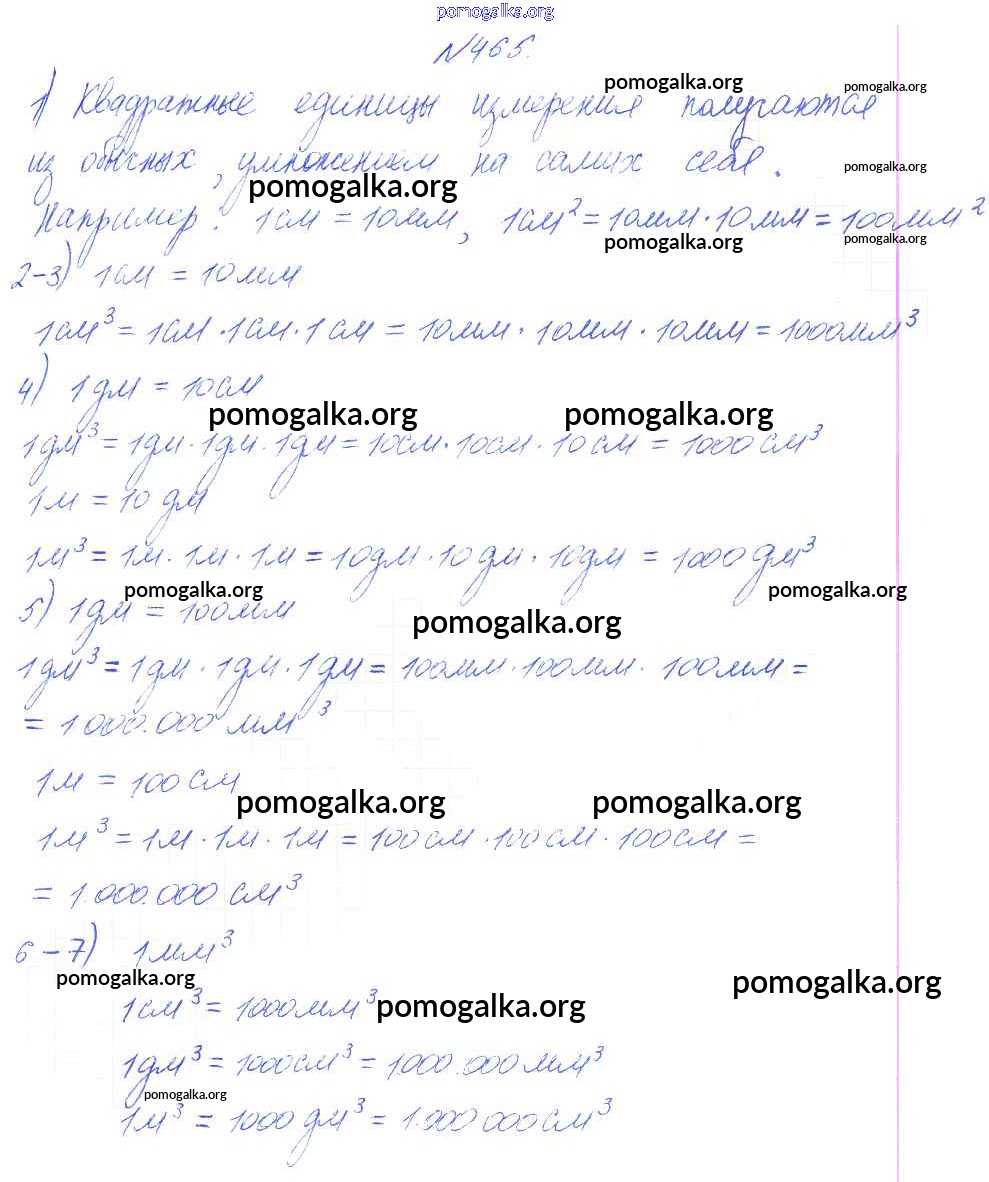 pomogalka.org
№465.
pomogalka.org pomogalka.org
1) Квадратные единицы измерения получаются
из обычных, умножением на самих себя.
pomogalka.org pomogalka.org
Например: 1см = 10мм, 1см² = 10мм · 10мм = 100мм²
pomogalka.org pomogalka.org
2-3) 1см = 10мм
1см³ = 1см · 1см · 1см = 10мм · 10мм · 10мм = 1000мм³
4) 1дм = 10см
pomogalka.org pomogalka.org
1дм³ = 1дм · 1дм · 1дм = 10см · 10см · 10см = 1000см³
1м = 10 дм
1м³ = 1м · 1м · 1м = 10дм · 10дм · 10дм = 1000 дм³
pomogalka.org pomogalka.org
5) 1дм = 100мм
pomogalka.org
1дм³ = 1дм · 1дм · 1дм = 100мм · 100мм · 100мм =
= 1000.000 мм³
1м = 100 см
pomogalka.org pomogalka.org
1м³ = 1м · 1м · 1м = 100см · 100см · 100см =
= 1.000.000 см³
6-7) 1мм³
pomogalka.org pomogalka.org
1см³ = 1000мм³
pomogalka.org
1дм³ = 1000см³ = 1000.000мм³
pomogalka.org
1м³ = 1000 дм³ = 1.000 000см³